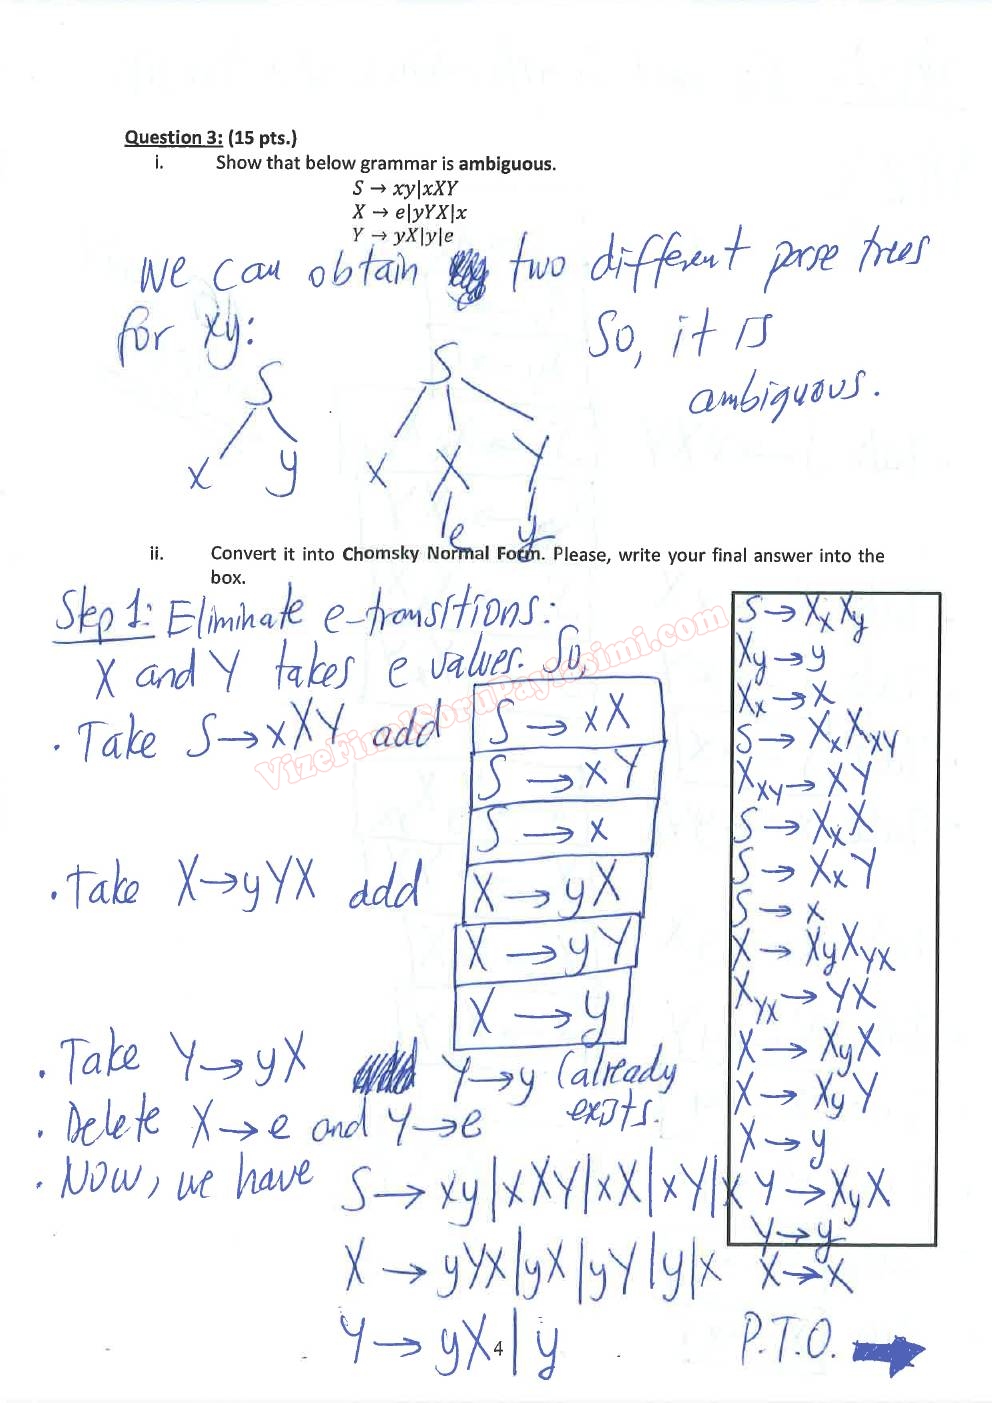 Question 3: (15 pts.)
i. Show that below grammar is ambiguous.
S → xy|xXY
X → e|yYX|x
Y → yX|y|e
We can obtain two different parse trees
for xy:
So, it is
ambiguous.
S
x y
S
x X Y
e y
ii. Convert it into Chomsky Normal Form. Please, write your final answer into the
box.
Step 1: Eliminate e-transitions:
X and Y takes e values. So,
• Take S→xXY add
S → xX
S → xY
S → x
• Take X→yYX add
X → yX
X → yY
X → y
• Take Y→yX Y→y (already
exists.
• Delete X→e and Y→e
• Now, we have
S → xy|xXY|xX|xY|x
X → yYX|yX|yY|y|x
Y → yX|y
S → XxXy
Xy → y
Xx → x
S → XxXXY
XXY → XY
S → XxX
S → XxY
S → x
X → XyXYX
XYX → YX
X → XyX
X → XyY
X → y
Y → XyX
Y → y
X → x
P.T.O.
4
VizeFinalSoruPaylasimi.com